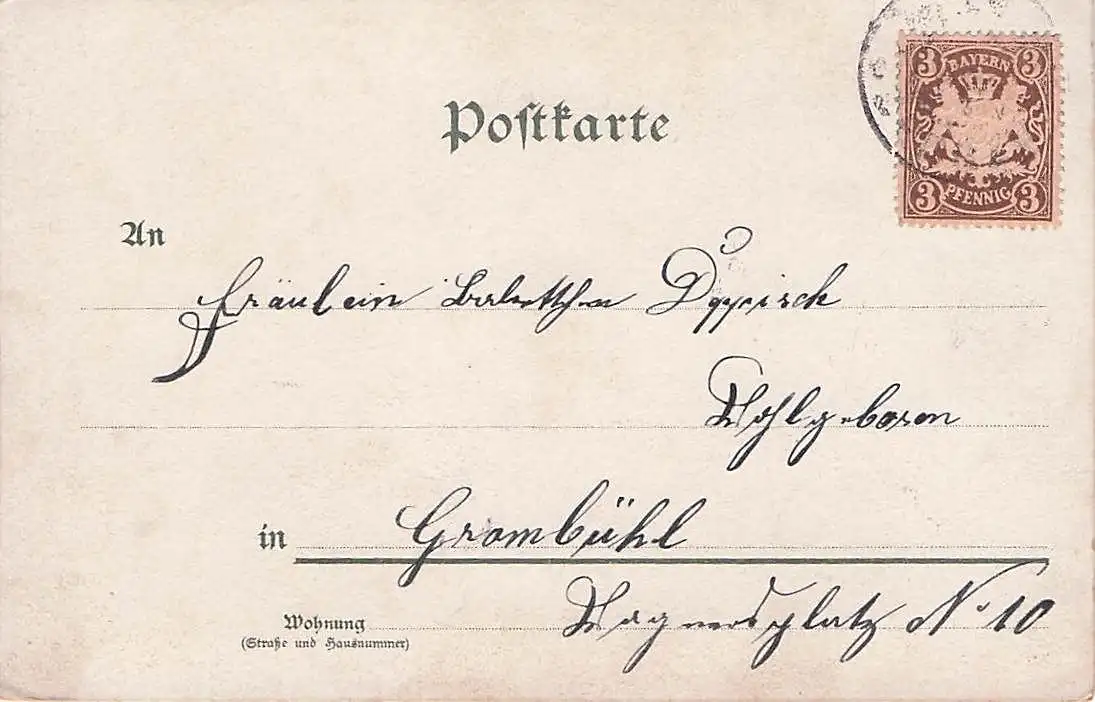 3 BAYERN 3
3 PFENNIG 3
Postkarte
An
Fräulein Babettchen
Wohlgeboren
in Grombühl
Wohnung Wagnersplatz No 10
(Straße und Hausnummer)